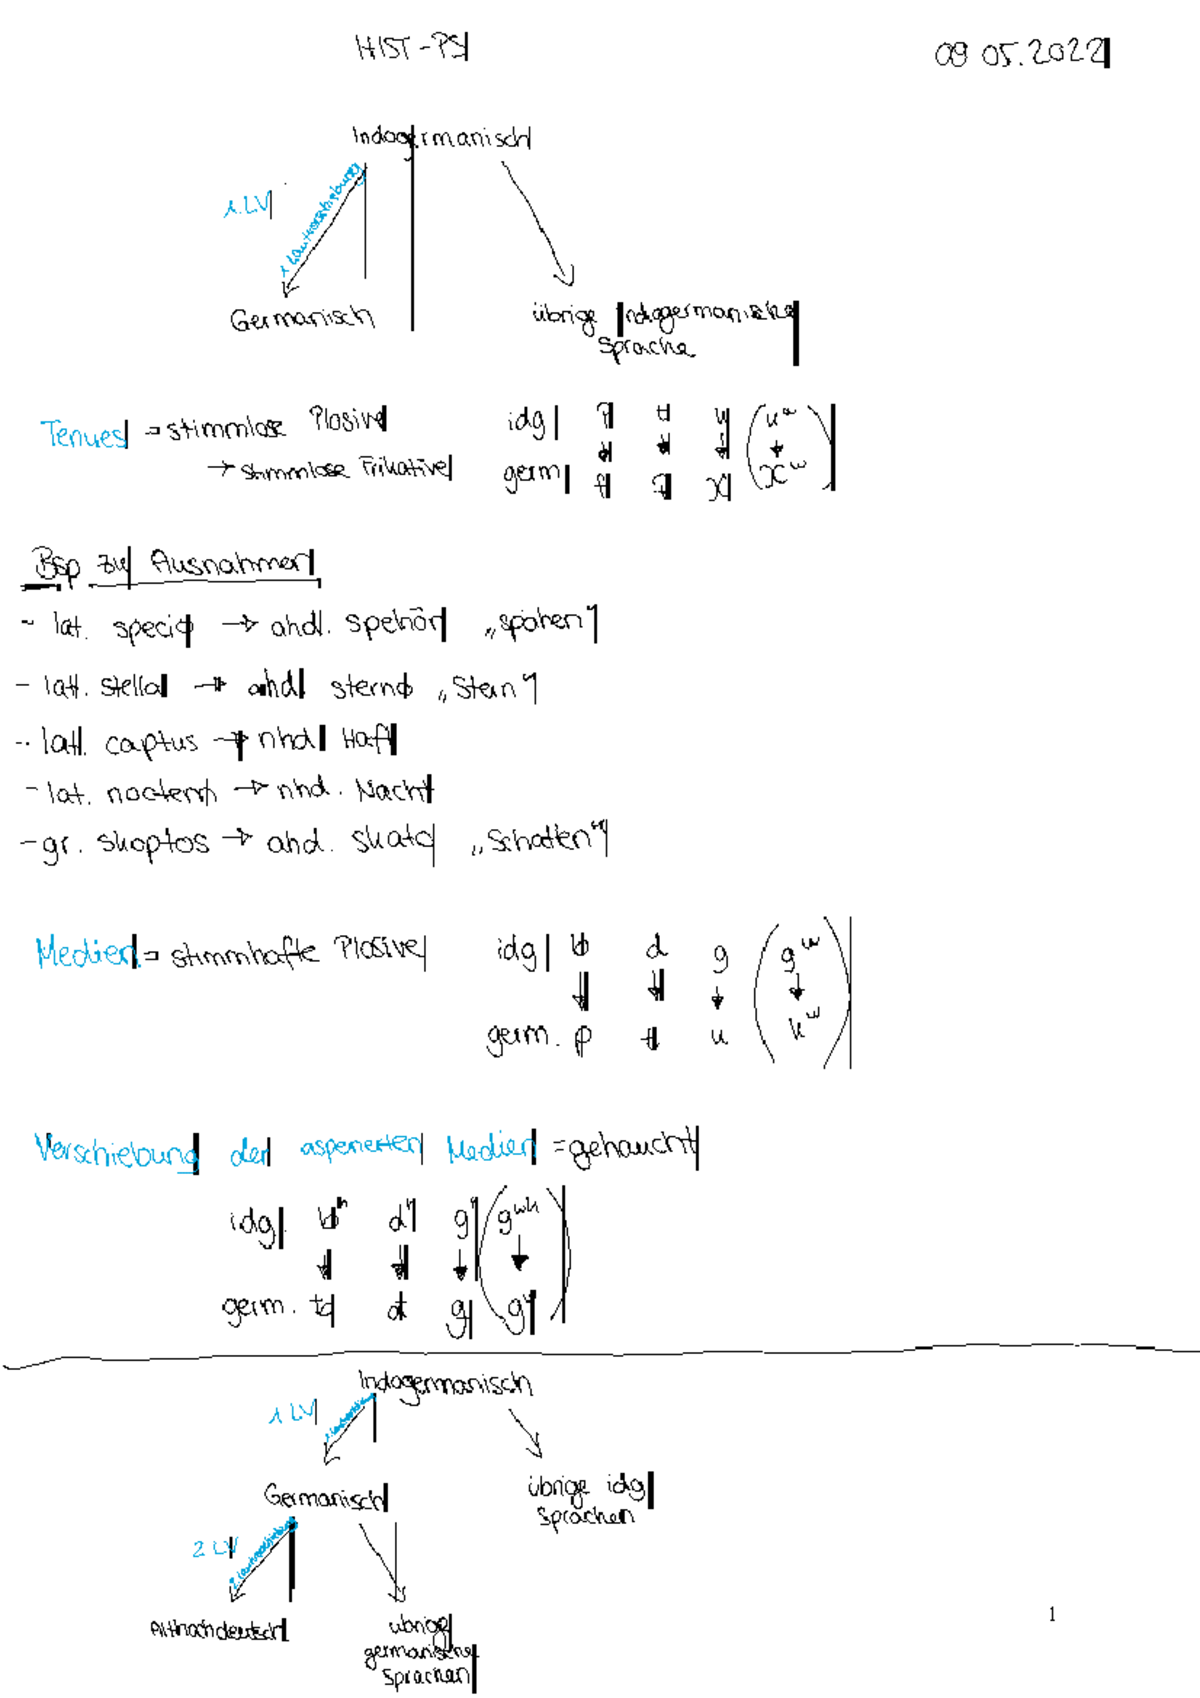 HIST-PS 09 05.2022
Indogermanisch
1. LV 1 Lautverschiebung
Germanisch übrige Indogermanische
Sprache
Tenues = stimmlose Plosive idg p t k (kw)
→ stimmlose Frikative germ f þ x (xw)
Bsp zu Ausnahmen
- lat. specio → ahd. spehōn „spähen"
- lat. stella → ahd sterno „Stern"
- lat. captus → nhd Haft
- lat. noctem → nhd. Nacht
- gr. skoptos → ahd. skato „Schatten"
Medien = stimmhafte Plosive idg b d g (gw)
germ. p t k (kw)
Verschiebung der aspirierten Medien = gehaucht
idg. bh dh gh (gwh)
germ. b d g (gw)
Indogermanisch
1 LV 1 Lautverschiebung
Germanisch übrige idg
Sprachen
2 LV 2 Lautverschiebung
Althochdeutsch übrige
germanische
Sprachen
1